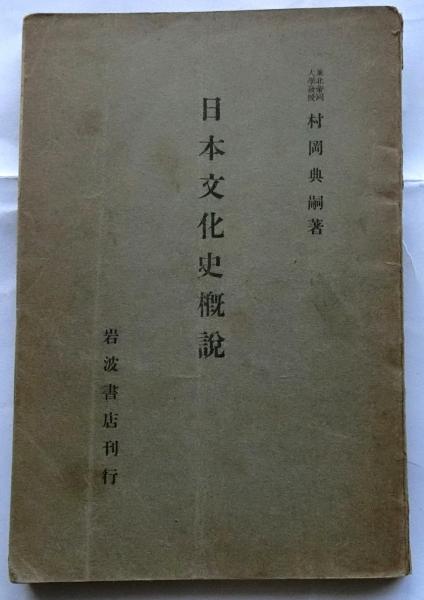 東北帝国
大学教授
村岡典嗣著
日本文化史概説
岩波書店刊行